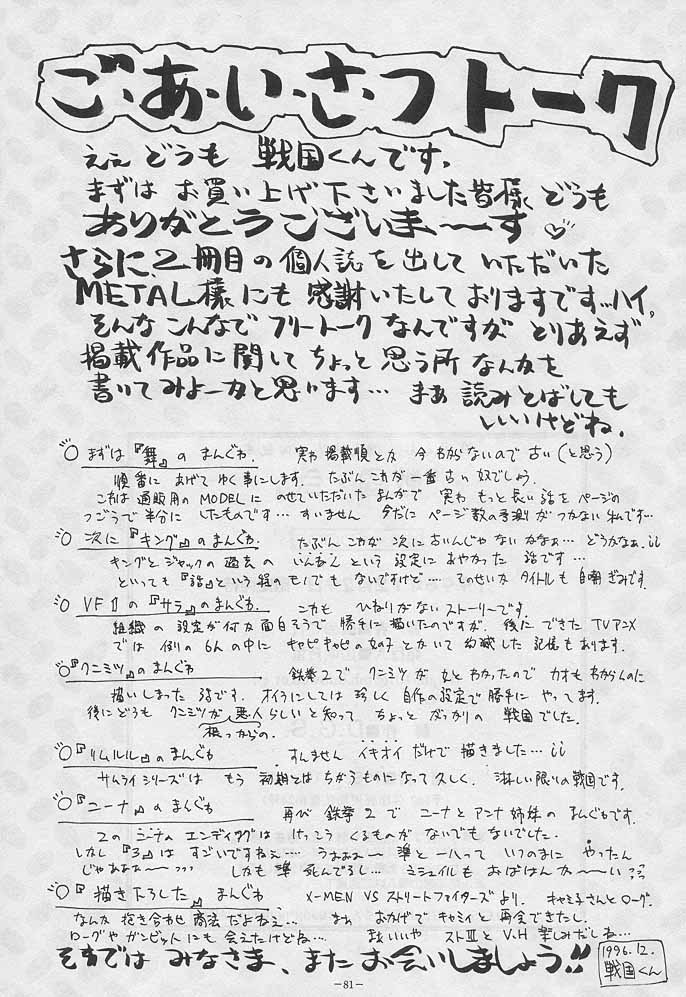 ご・あ・い・さ・フトーク
ええ どうも 戦国くんです。
まずは お買い上げ下さいました皆様 どうも
ありがとうございま〜〜す♡
さらに、2冊目の個人誌を出して いただいた
METAL様にも 感謝いたして おりますです…ハイ。
そんなこんなで フリートーク なんですが とりあえず
掲載作品に関して ちょっと 思う所 なんかを
書いてみよーかと思います… まぁ 読みとばしても
いいけどね。
○ まずは『舞』の まんぐわ. 実わ 掲載順とか 今 わからないので 古い(と思う)
順番に あげて ゆく事にします. たぶん これが 一番 古い 奴でしょう.
これは 通販用の MODELに のせていただいた まんがで 実わ もっと 長い 話を ページの
つごうで 半分に したものです… すいません 今だに ページ数の予測が つかない 私です…
○ 次に『キング』のまんぐわ. たぶん これが 次に 古いんじゃない かなぁ… どうかなぁ.
キングと ジャックの 過去の いんねん という 設定に おやかった 話です…
といっても『話』という程のモノでも ないですけど…. そのせいか タイトルも 自嘲ぎみです.
○ VFⅡの『サラ』のまんぐわ. これも ひねりがない ストーリーです.
組織の 設定が 何か 面白そうで 勝手に 描いたのですが. 後に できた TVアニメ
では 例の 6人の中に キャピキャピの女の子とかいて 幻滅した 記憶もあります.
○『クニミツ』のまんぐわ 鉄拳2で クニミツが 女と わかったので カオも わからんのに
描いしまった 話です. オイラにしては 珍しく 自作の設定で 勝手に やってます.
後にどうも クニミツが 悪人らしいと知って ちょっと がっかりの 戦国でした.
根っからの.
○『リムルル』のまんぐわ すんません イキオイだけで 描きました…
サムライシリーズは もう 初期とは ちがうものに なって 久しく. 淋しい限りの戦国です.
○『ニーナ』の まんぐわ 再び 鉄拳2で ニーナと アンナ 姉妹の まんぐわです.
2の ニーナ エンディングは けっこう くるものが ないでもないでした.
しかし『3』は すごいですねぇ… うおぉぉ〜 準と 一八って いつのまに やったん
じゃああぁ〜 しかも 準 死んでるし… ミシェイルも おばはんか〜〜い
○『描き下ろした』まんぐわ X-MEN VS ストリートファイターズ より. キャミ子さんと ローグ.
なんか 抱き合わせ 商法 だよねぇ… まぁ おかげで キャミィと 再会できたし.
ローグや ガンビットにも 会えたけどね… まぁいいや ストⅢと V・H 楽しみだしね…
それでは みなさま、また お会いしましょう!!
1996.12.
戦国くん
－81－